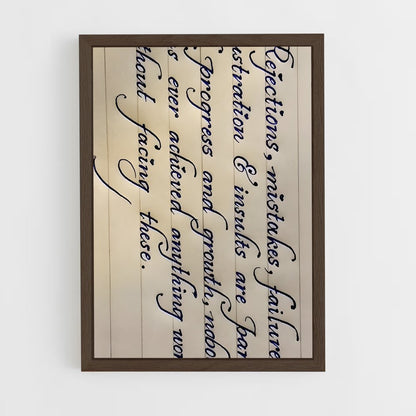 Rejections, mistakes, failure
stration & insults are Par
progress and growth, nobo
s ever achieved anything wor
hout facing these.